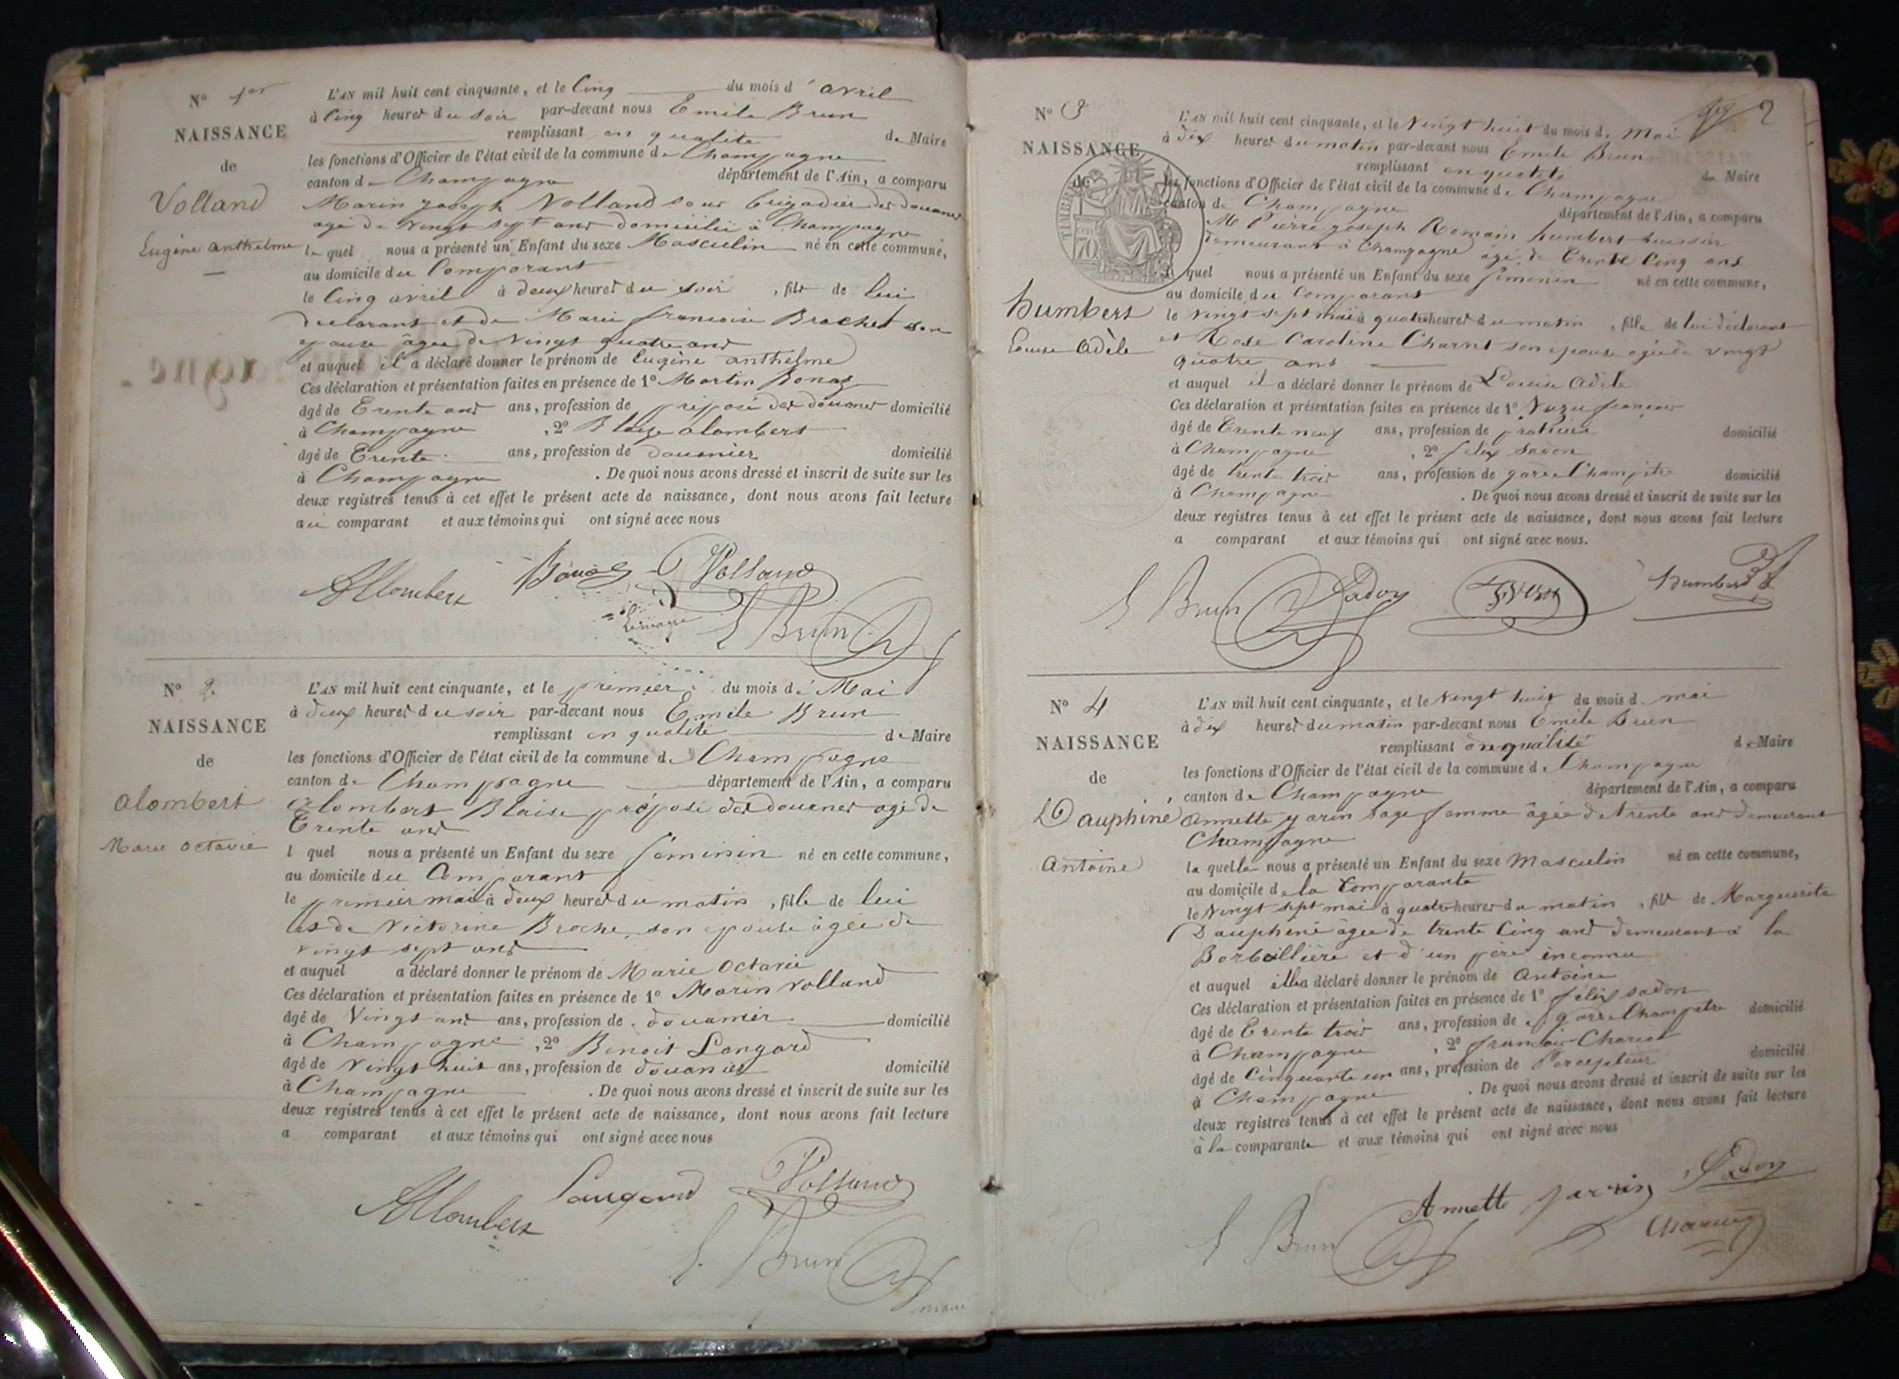 N° 1er
NAISSANCE
de
Volland
Eugène anthelme
L'AN mil huit cent cinquante, et le Cinq du mois d' avril
à Cinq heures du soir par-devant nous Emile Brun
remplissant en qualité de Maire
les fonctions d'Officier de l'état civil de la commune de Champagne
canton de Champagne département de l'Ain, a comparu
Marin joseph Volland sous brigadier des douanes
agé de vingt sept ans domicilié à Champagne
lequel nous a présenté un Enfant du sexe Masculin né en cette commune,
au domicile du Comparant
le Cinq avril à deux heures du soir, fils de lui
declarant et de Marie francoise Brachet son
epouse agée de vingt quatre ans
et auquel il a déclaré donner le prénom de Eugène anthelme
Ces déclaration et présentation faites en présence de 1° Martin Bonaz
âgé de Trente ans ans, profession de préposé des douanes domicilié
à Champagne, 2° Blaize alombert
âgé de Trente ans, profession de douanier domicilié
à Champagne. De quoi nous avons dressé et inscrit de suite sur les
deux registres tenus à cet effet le présent acte de naissance, dont nous avons fait lecture
au comparant et aux témoins qui ont signé avec nous
Allombert Bonaz Volland
E Brun
N° 2
NAISSANCE
de
alombert
Marie octavie
L'AN mil huit cent cinquante, et le premier du mois de Mai
à deux heures du soir par-devant nous Emile Brun
remplissant en qualité de Maire
les fonctions d'Officier de l'état civil de la commune de Champagne
canton de Champagne département de l'Ain, a comparu
alombert Blaise préposé des douanes agé de
Trente ans
l quel nous a présenté un Enfant du sexe féminin né en cette commune,
au domicile du Comparant
le premier mai à deux heures du matin, fille de lui
et de Victorine Broche son epouse âgée de
vingt sept ans
et auquel a déclaré donner le prénom de Marie Octavie
Ces déclaration et présentation faites en présence de 1° Marin Volland
âgé de Vingt ans ans, profession de douanier domicilié
à Champagne, 2° Benoit Langard
âgé de Vingt huit ans, profession de douanier domicilié
à Champagne. De quoi nous avons dressé et inscrit de suite sur les
deux registres tenus à cet effet le présent acte de naissance, dont nous avons fait lecture
a comparant et aux témoins qui ont signé avec nous
Allombert Langard Volland
E. Brun
maire
2
N° 3
NAISSANCE
de
TIMBRE
humbert
Louise Adèle
L'AN mil huit cent cinquante, et le Vingt huit du mois de Mai
à dix heures du matin par-devant nous Emile Brun
remplissant en qualité de Maire
les fonctions d'Officier de l'état civil de la commune de Champagne
canton de Champagne département de l'Ain, a comparu
M Pierre joseph Romain humbert huissier
demeurant à Champagne agé de Trente Cinq ans
lequel nous a présenté un Enfant du sexe féminin né en cette commune,
au domicile du Comparant
le Vingt sept mai à quatre heures du matin, fille de lui déclarant
et Rose Caroline son epouse agée de vingt
quatre ans
et auquel il a déclaré donner le prénom de Louise Adèle
Ces déclaration et présentation faites en présence de 1° françois
âgé de Trente neuf ans, profession de domicilié
à Champagne, 2° félix sadon
âgé de trente trois ans, profession de garde Champêtre domicilié
à Champagne. De quoi nous avons dressé et inscrit de suite sur les
deux registres tenus à cet effet le présent acte de naissance, dont nous avons fait lecture
a comparant et aux témoins qui ont signé avec nous.
E Brun Sadon humbert
N° 4
NAISSANCE
de
Dauphiné
Antoine
L'AN mil huit cent cinquante, et le Vingt huit du mois d mai
à dix heures du matin par-devant nous Emile Brun
remplissant en qualité de Maire
les fonctions d'Officier de l'état civil de la commune de Champagne
canton de Champagne département de l'Ain, a comparu
annette jarin sage femme âgée de trente ans demeurant
Champagne
la quelle nous a présenté un Enfant du sexe Masculin né en cette commune,
au domicile de la Comparante
le Vingt sept mai à quatre heures du matin, fils de Marguerite
Dauphiné âgée de trente Cinq ans demeurant à la
Barbillière et d'un père inconnu
et auquel elle a déclaré donner le prénom de Antoine
Ces déclaration et présentation faites en présence de 1° félix sadon
âgé de Trente trois ans, profession de garde Champêtre domicilié
à Champagne, 2° françois
âgé de Cinquante un ans, profession de Percepteur domicilié
à Champagne. De quoi nous avons dressé et inscrit de suite sur les
deux registres tenus à cet effet le présent acte de naissance, dont nous avons fait lecture
à la comparante et aux témoins qui ont signé avec nous
E Brun Annette jarrin Sadon